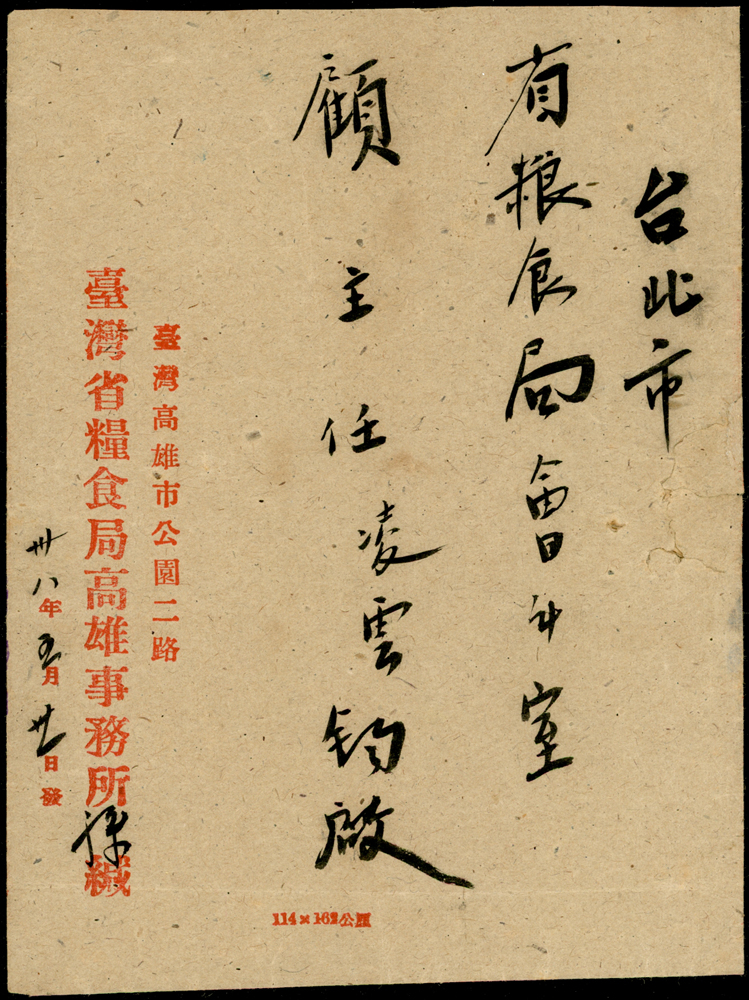 台北市
省粮食局會计室
顧主任凌雲鈞啟
臺灣高雄市公園二路
臺灣省糧食局高雄事務所緘
卅八年五月日發
114×162公厘